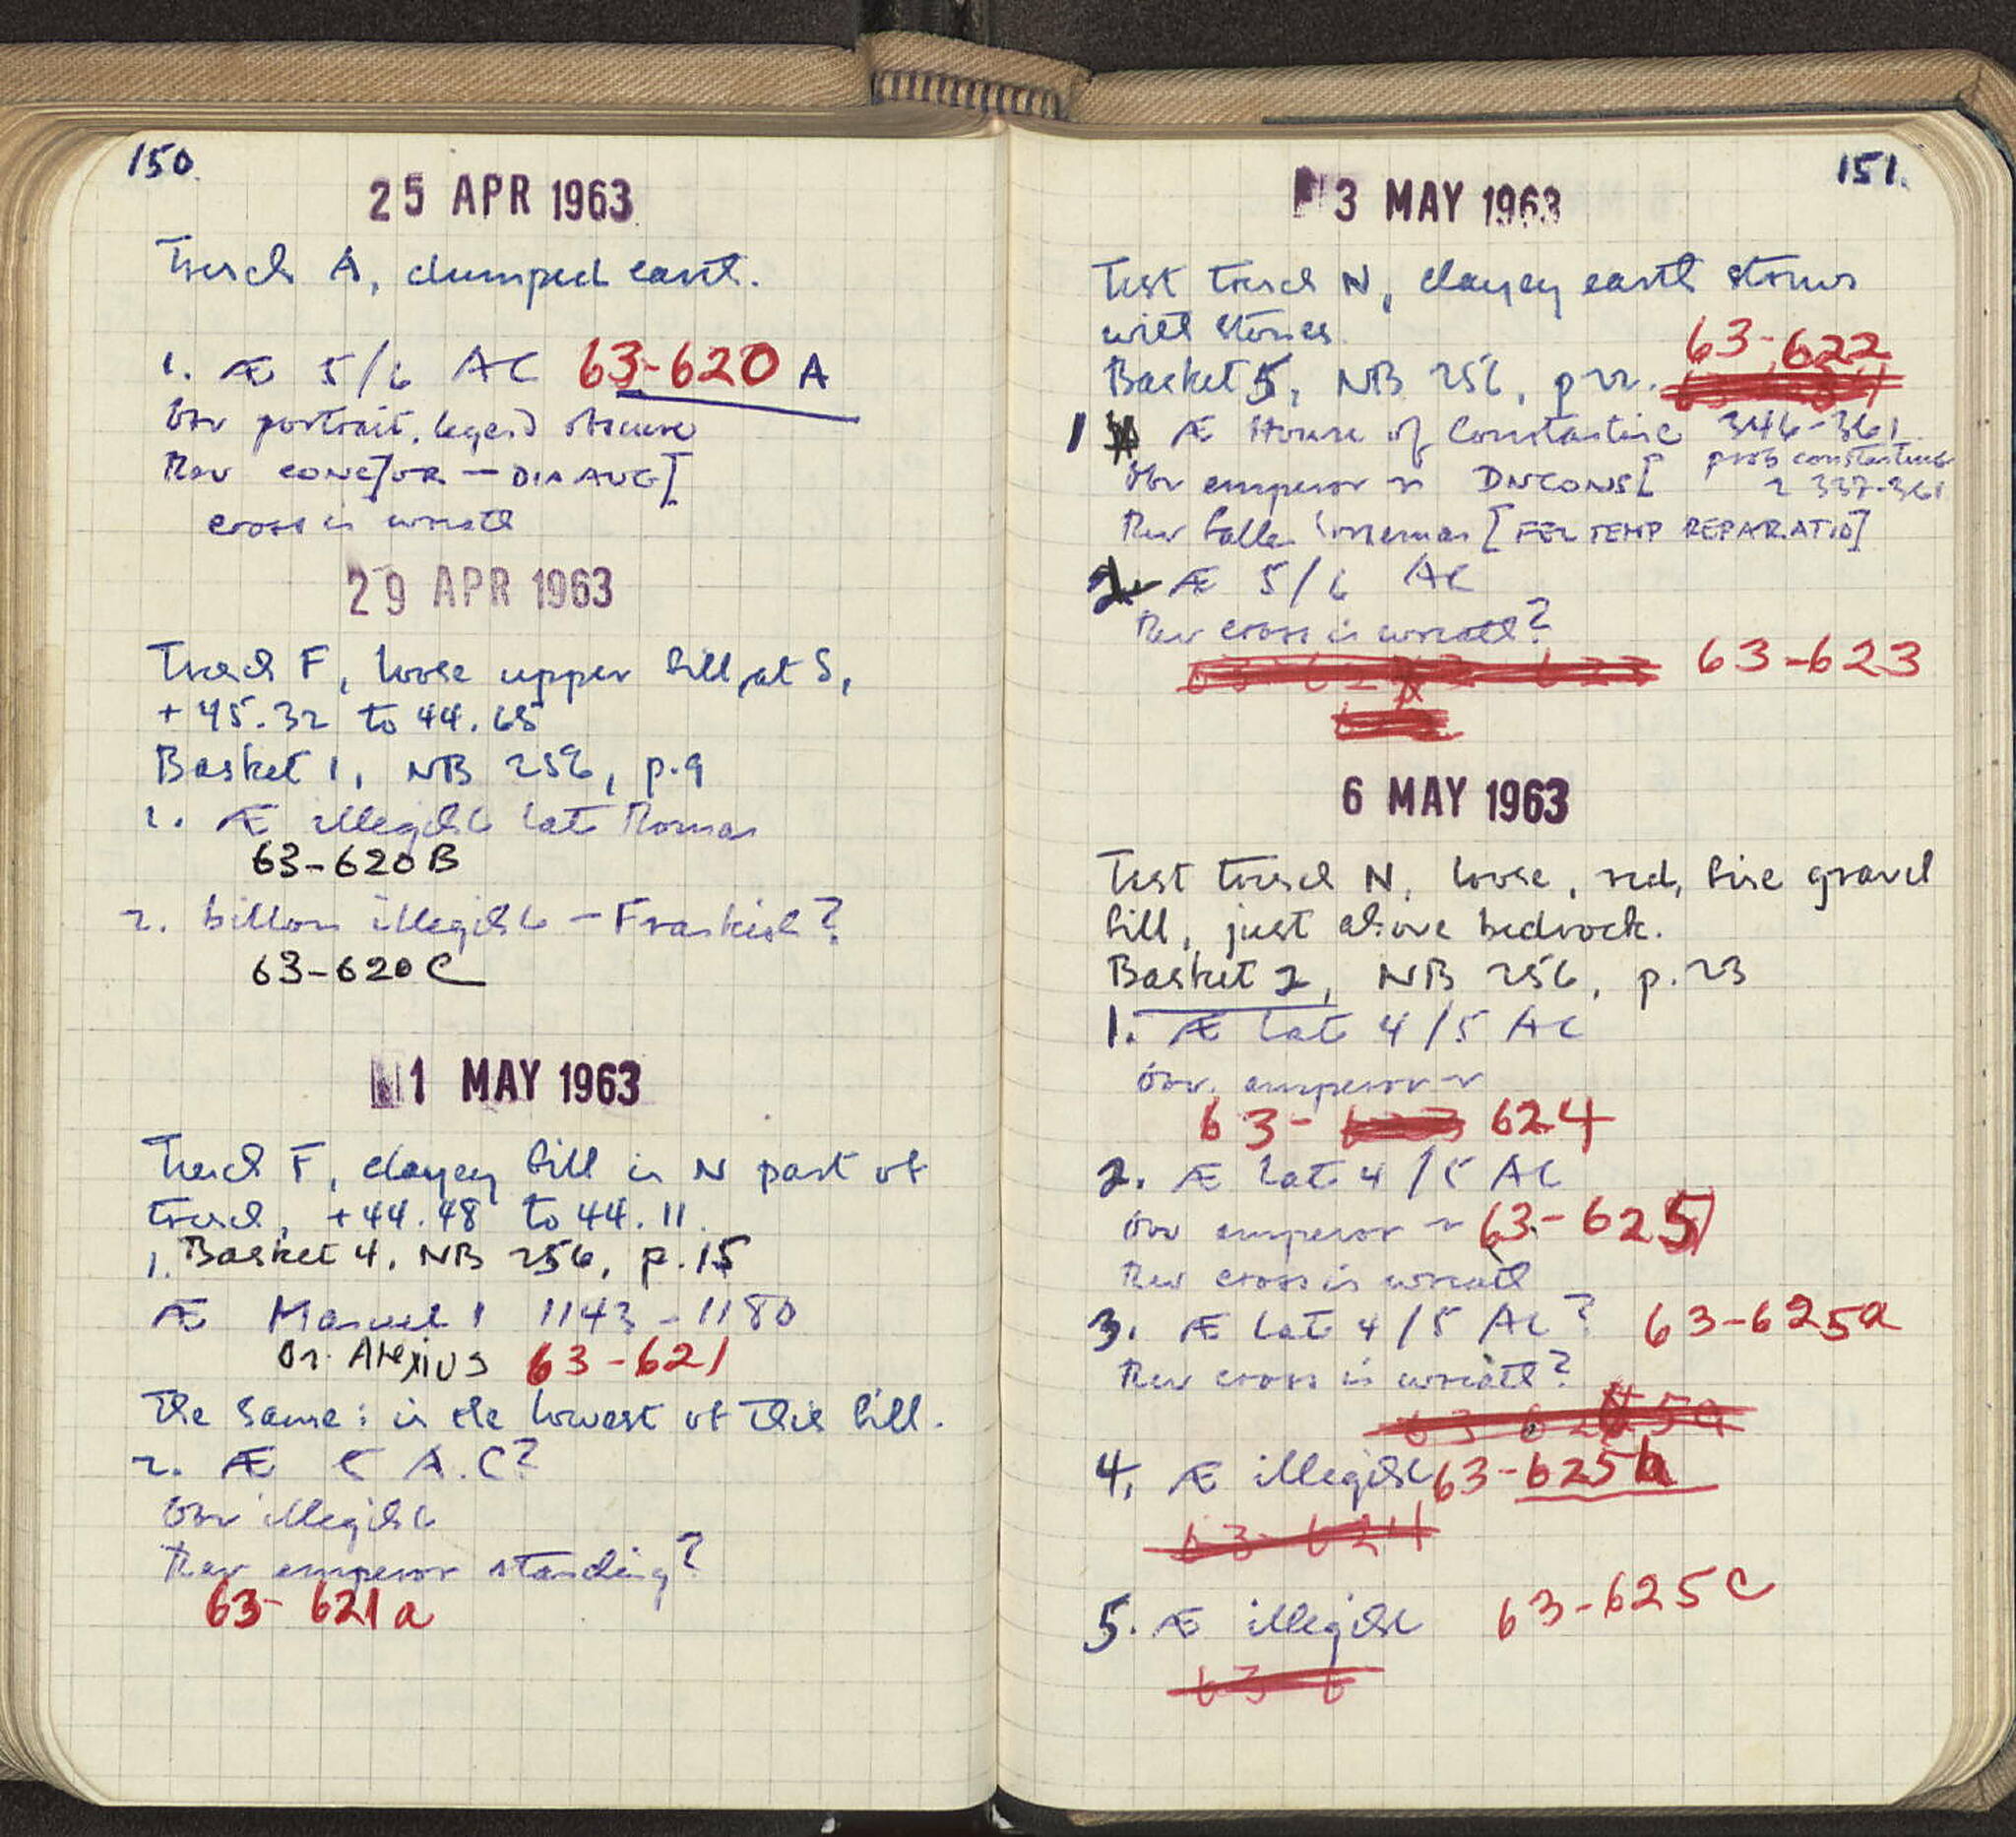 150.
25 APR 1963
Trench A, dumped earth.
1. Æ 5/6 AC 63-620 A
Obv portrait, legend obscure
Rev CONC]OR — DIA AUG[
cross in wreath
29 APR 1963
Trench F, loose upper fill, at S,
+45.32 to 44.65
Basket 1, NB 256, p.9
1. Æ illegible late Roman
63-620B
2. billon illegible - Frankish?
63-620C
1 MAY 1963
Trench F, clayey fill in N part of
trench, +44.48 to 44.11.
1. Basket 4, NB 256, p.15
Æ Manuel I 1143-1180
Or. Alexius 63-621
The same: in the lowest of this fill.
2. Æ 5 A.C?
Obv illegible
Rev emperor standing?
63-621a
151.
3 MAY 1963
Test trench N, clayey earth
with stones
63-622
Basket 5, NB 256, p 22.
1 Æ House of Constantine 346-361
prob Constantius
Obv emperor r DNCONS[ 2 337-361
Rev fallen horseman [FEL TEMP REPARATIO]
2. Æ 5/6 AC
Rev cross in wreath?
63-623
6 MAY 1963
Test trench N, loose, red, fine gravel
fill, just above bedrock.
Basket 2, NB 256, p.23
1. Æ late 4/5 AC
Obv. emperor r
63- 624
2. Æ late 4/5 AC
Obv emperor r 63-625
Rev cross in wreath
3. Æ late 4/5 AC? 63-625a
Rev cross in wreath?
4. Æ illegible 63-625b
63-624
5. Æ illegible 63-625c
63 6